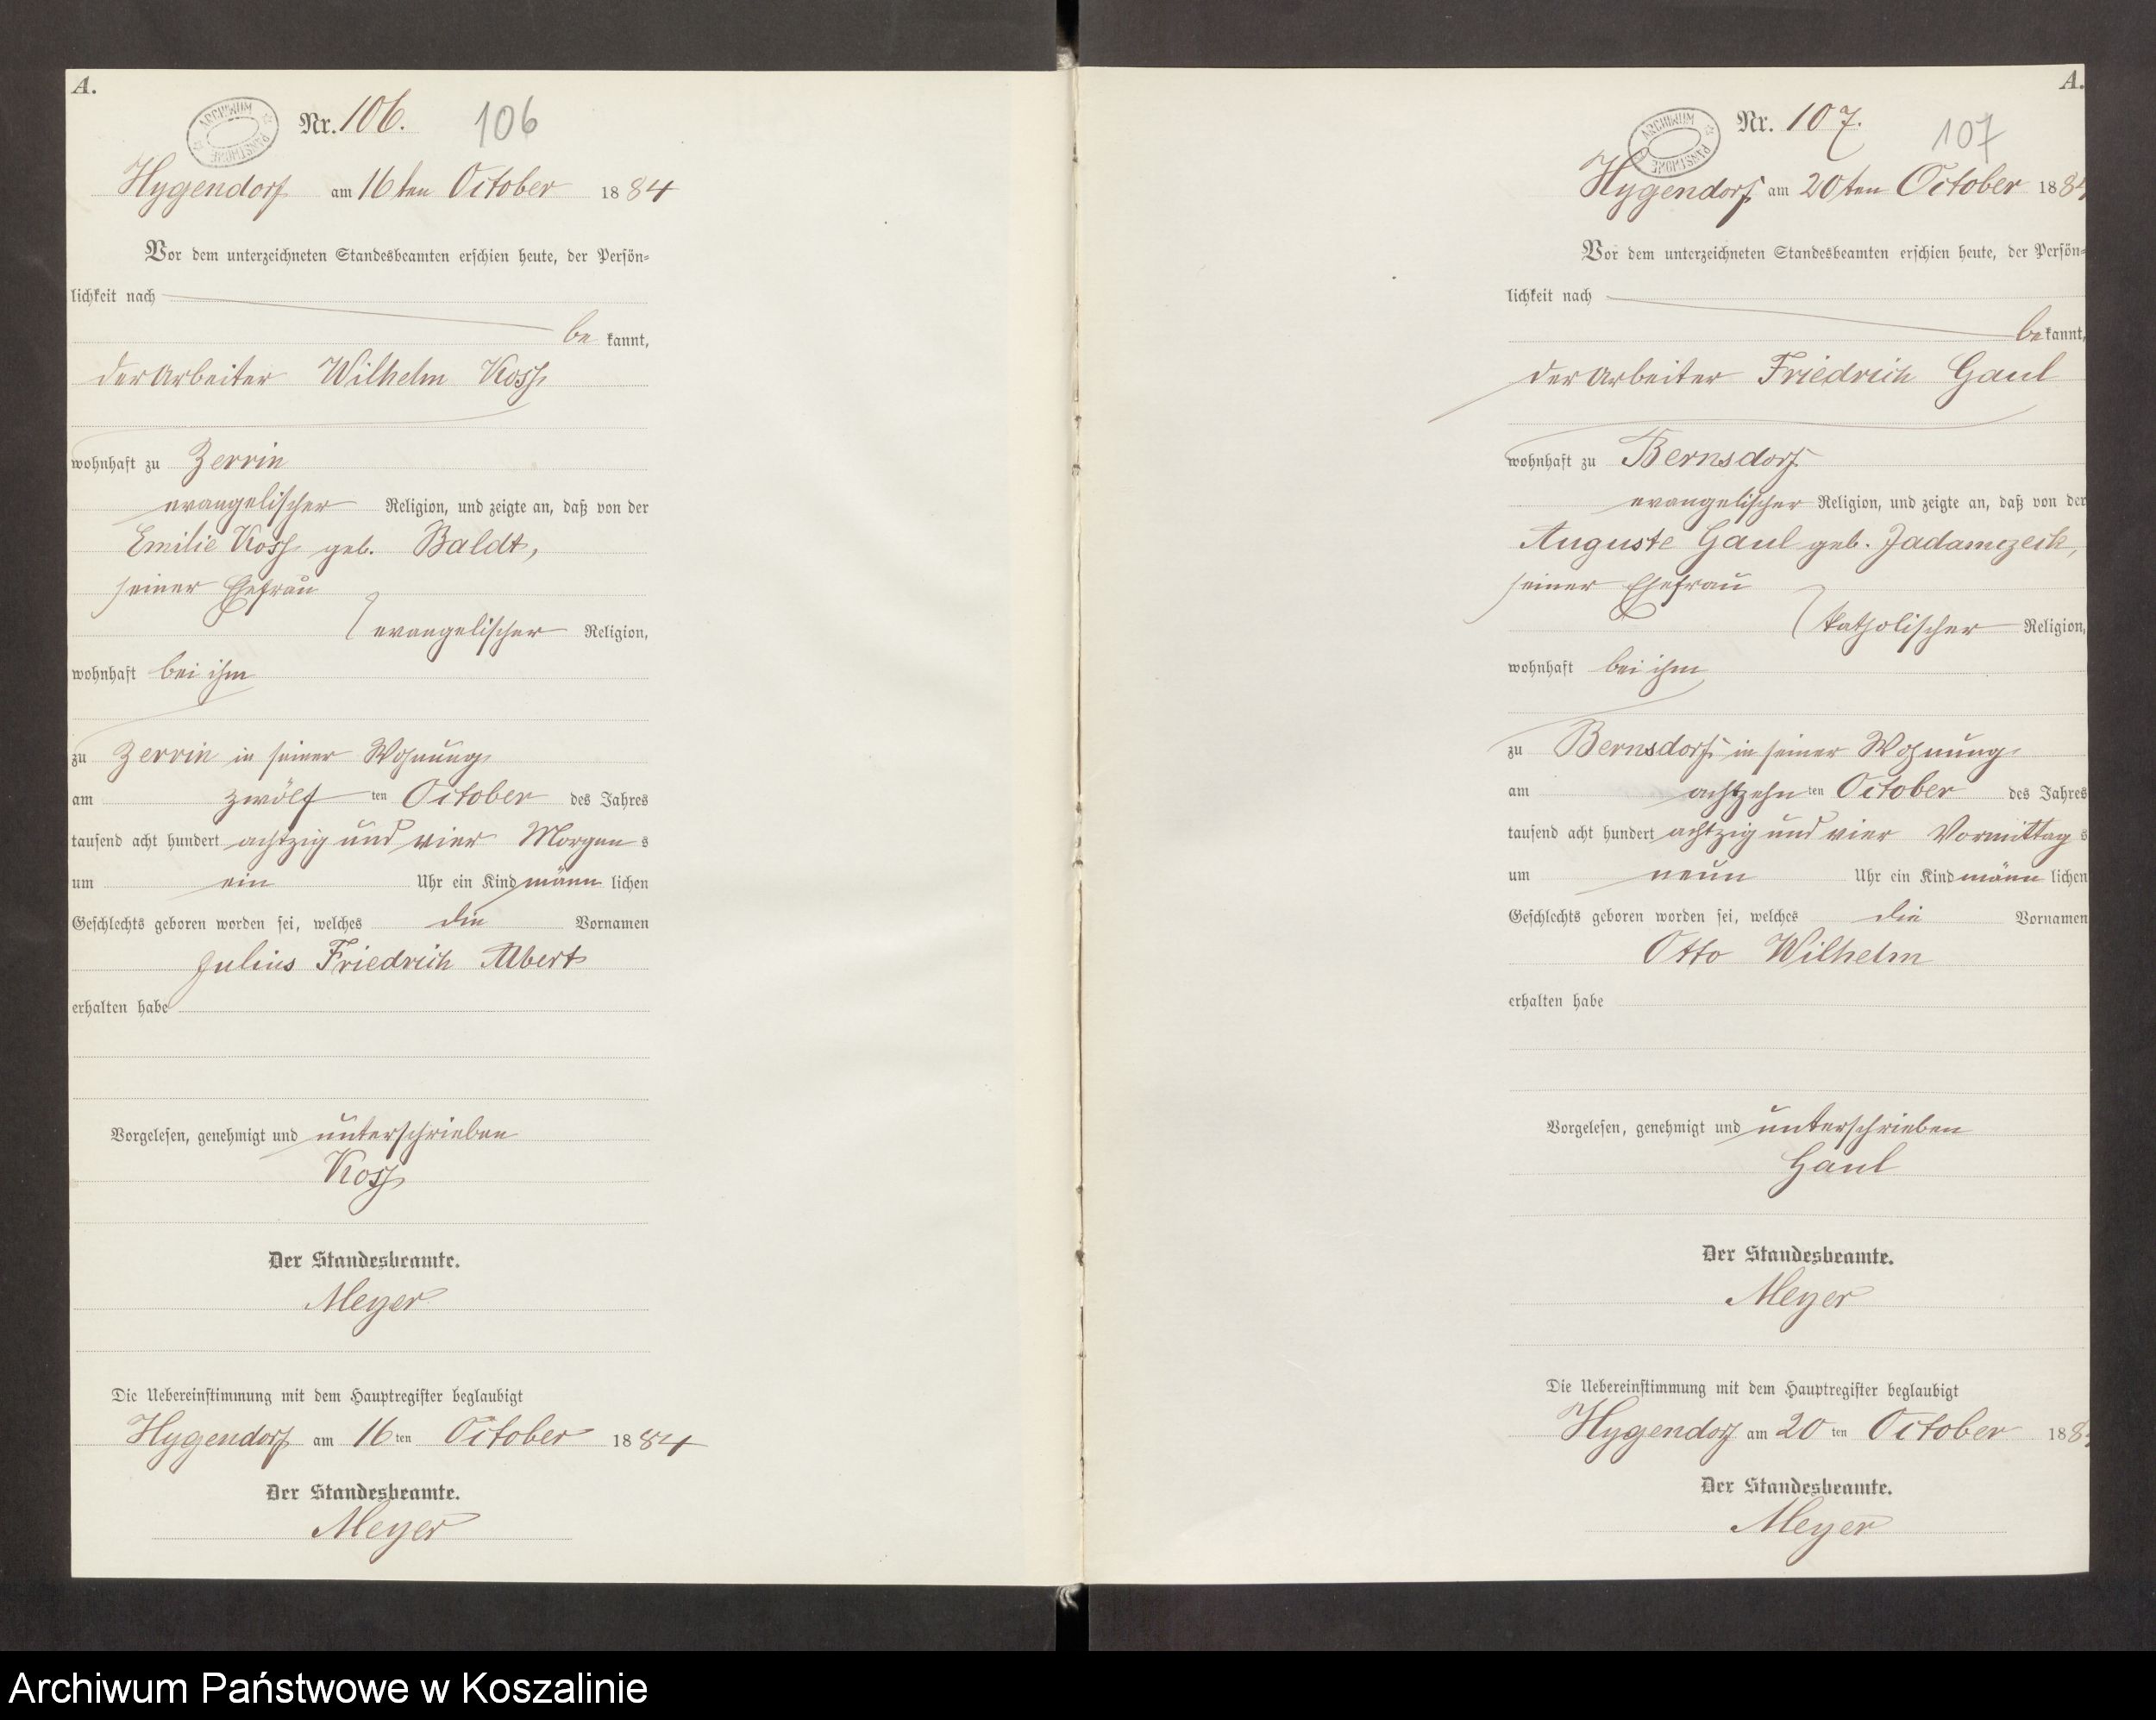 A.
ARCHIWUM PAŃSTWOWE
Nr. 106. 106
Hygendorf am 16ten October 1884
Vor dem unterzeichneten Standesbeamten erschien heute, der Persön-
lichkeit nach
be kannt,
der Arbeiter Wilhelm Koss
wohnhaft zu Zerrin
evangelischer Religion, und zeigte an, daß von der
Emilie Koss geb. Baldt,
seiner Ehefrau
evangelischer Religion,
wohnhaft bei ihm
zu Zerrin in seiner Wohnung
am zwölf ten October des Jahres
tausend acht hundert achtzig und vier Morgen s
um ein Uhr ein Kind männ lichen
Geschlechts geboren worden sei, welches die Vornamen
Julius Friedrich Albert
erhalten habe
Vorgelesen, genehmigt und unterschrieben
Koss
Der Standesbeamte.
Meyer
Die Uebereinstimmung mit dem Hauptregister beglaubigt
Hygendorf am 16 ten October 1884
Der Standesbeamte.
Meyer
A.
ARCHIWUM PAŃSTWOWE
Nr. 107. 107
Hygendorf am 20ten October 188
Vor dem unterzeichneten Standesbeamten erschien heute, der Persön-
lichkeit nach
be kannt,
der Arbeiter Friedrich Gaul
wohnhaft zu Bernsdorf
evangelischer Religion, und zeigte an, daß von der
Auguste Gaul geb. Jadamczeck,
seiner Ehefrau
katholischer Religion,
wohnhaft bei ihm
zu Bernsdorf in seiner Wohnung
am achtzehn ten October des Jahres
tausend acht hundert achtzig und vier Vormittag s
um neun Uhr ein Kind männ lichen
Geschlechts geboren worden sei, welches die Vornamen
Otto Wilhelm
erhalten habe
Vorgelesen, genehmigt und unterschrieben
Gaul
Der Standesbeamte.
Meyer
Die Uebereinstimmung mit dem Hauptregister beglaubigt
Hygendorf am 20 ten October 188
Der Standesbeamte.
Meyer
Archiwum Państwowe w Koszalinie